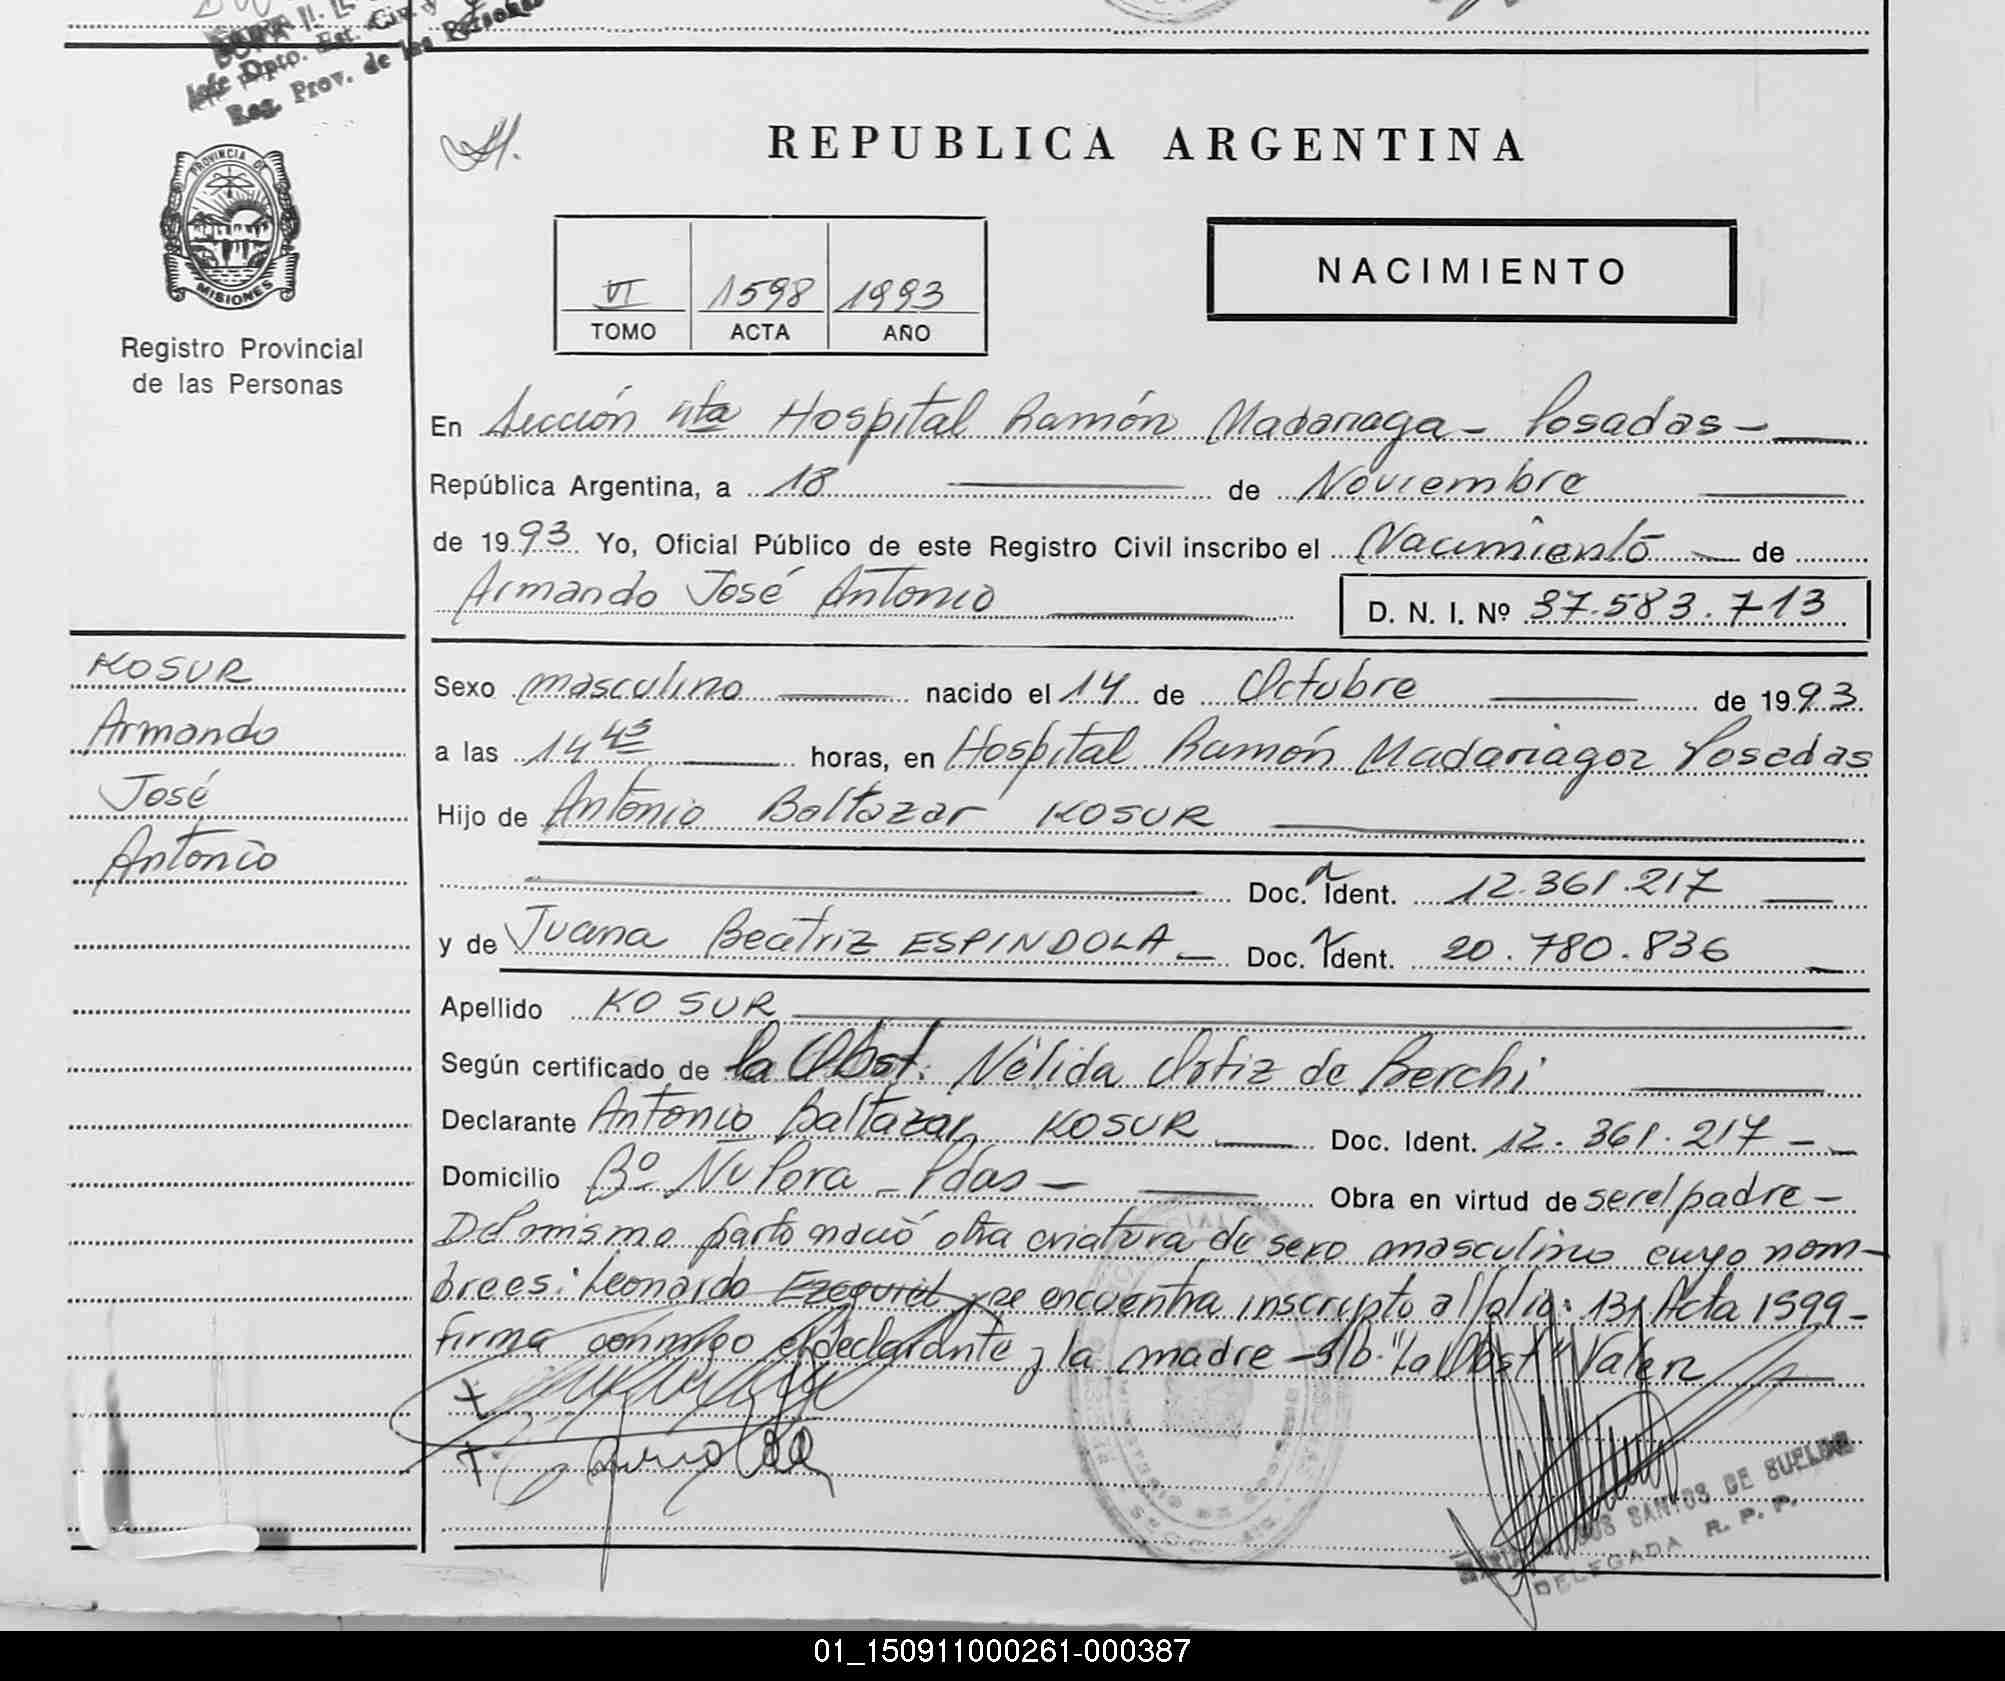 Jefe Dpto. Est. Civ. y
Reg. Prov. de las Personas
PROVINCIA DE
MISIONES
Registro Provincial
de las Personas
REPUBLICA ARGENTINA
VI 1598 1993
TOMO ACTA AÑO
NACIMIENTO
En Sección 4ta Hospital Ramón Madariaga - Posadas -
República Argentina, a 18 de Noviembre
de 1993 Yo, Oficial Público de este Registro Civil inscribo el Nacimiento de
Armando José Antonio D. N. I. Nº 37.583.713
KOSUR
Armando
José
Antonio
Sexo masculino nacido el 14 de Octubre de 1993
a las 14 45 horas, en Hospital Ramón Madariaga Posadas
Hijo de Antonio Baltazar KOSUR
Doc. Ident. 12.361.217
y de Juana Beatriz ESPINDOLA - Doc. Ident. 20.780.836
Apellido KOSUR
Según certificado de la Obst. Nélida Ortiz de Berchi
Declarante Antonio Baltazar KOSUR Doc. Ident. 12.361.217 -
Domicilio Bº Ñu Pora - Pdas - Obra en virtud de ser el padre -
Del mismo parto nació otra criatura de sexo masculino cuyo nom-
bre es: Leonardo Ezequiel y se encuentra inscripto al folio: 131 Acta 1599-
firma conmigo el declarante y la madre - s/b. "La Obst" Valen
SANTOS DE SUELDO
DELEGADA R. P. P.
01_150911000261-000387